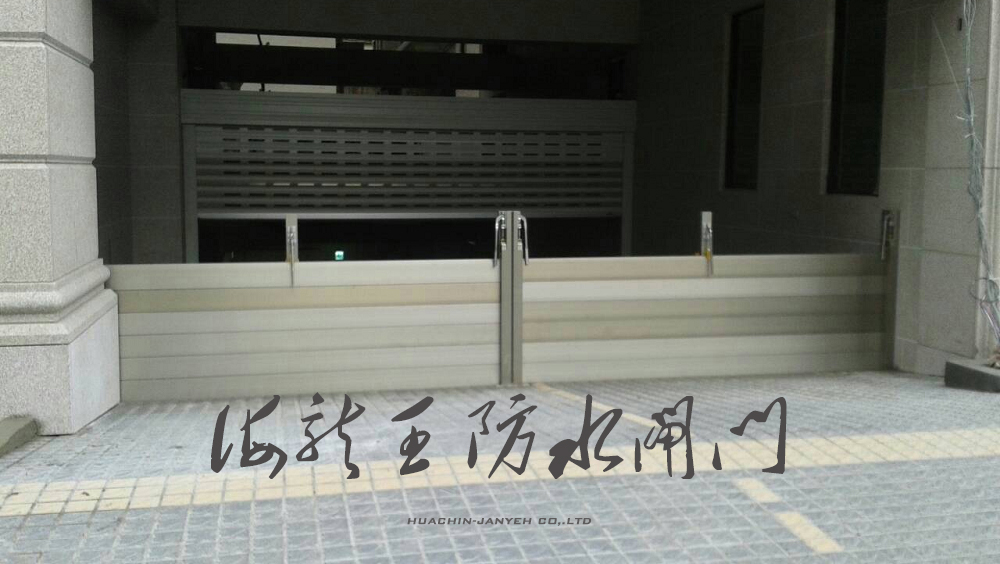 海龍王防水閘門
HUACHIN-JANYEH CO,.LTD